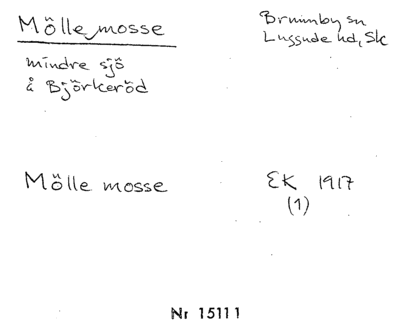 Mölle mosse
Brunnby sn
Luggude hd, Sk
mindre sjö
å Björkeröd
Mölle mosse
EK 1917
(1)
Nr 15111